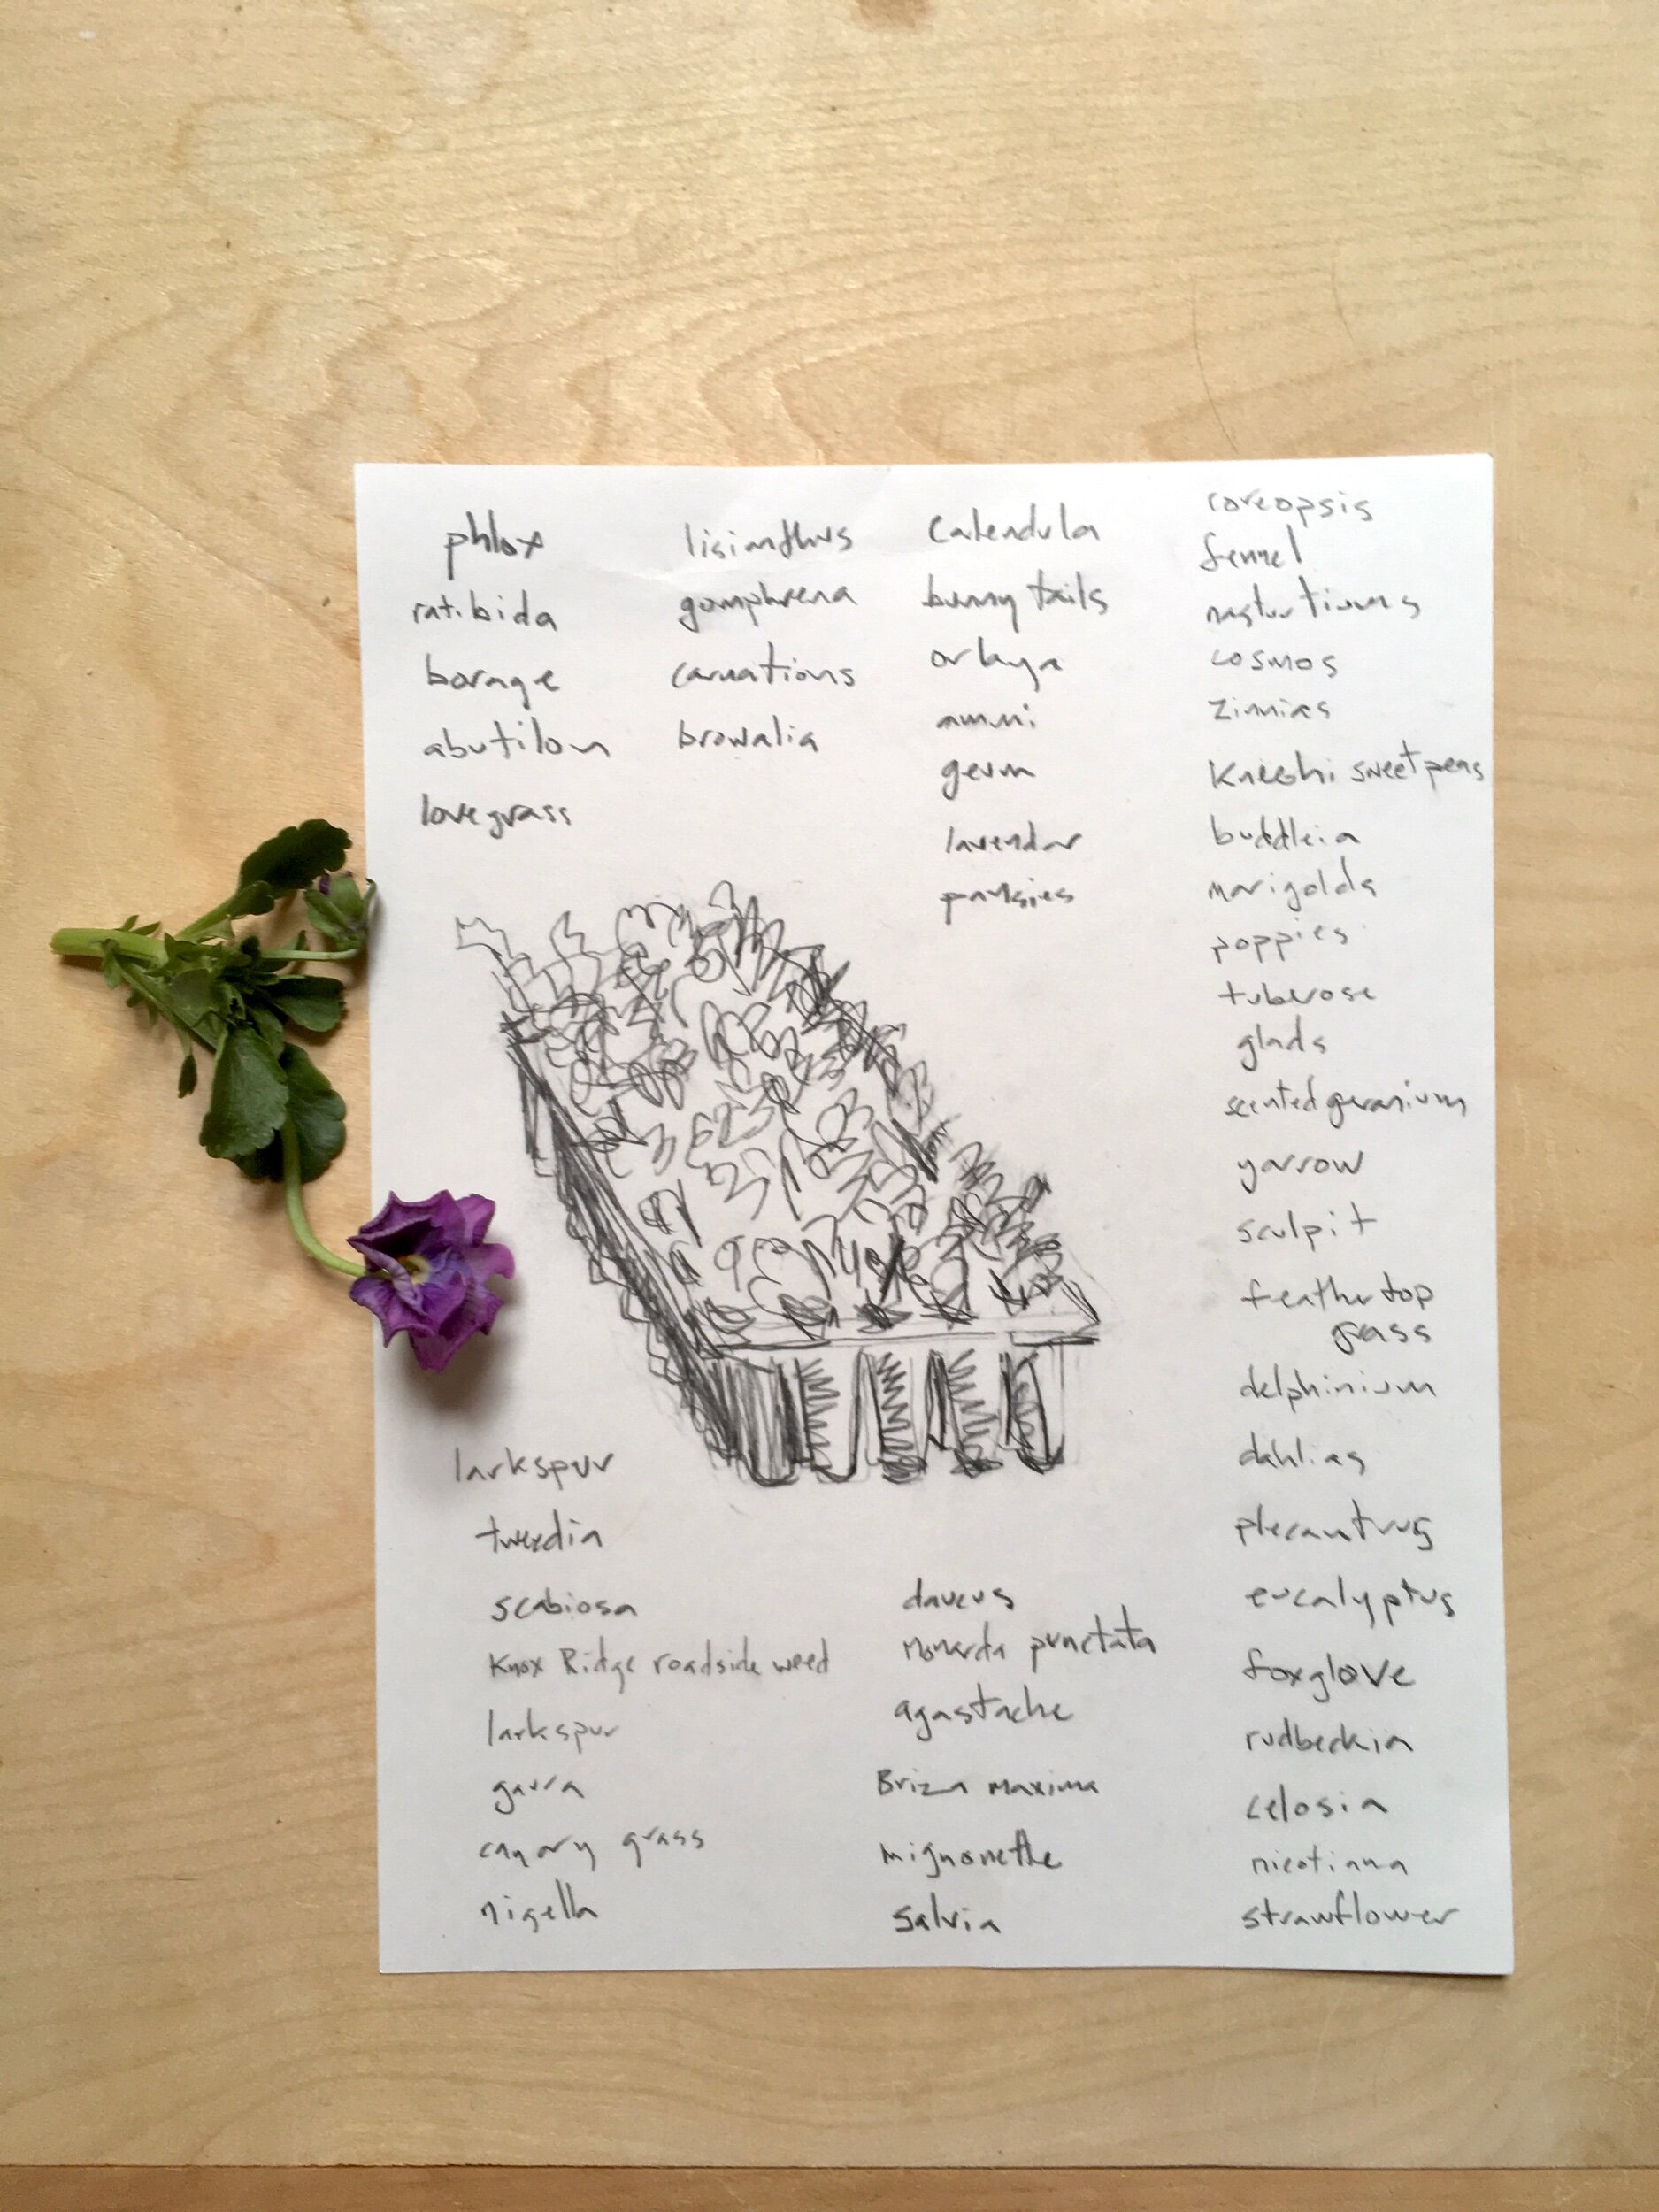 phlox
ratibida
borage
abutilon
lovegrass
lisianthus
gomphrena
carnations
browalia
Calendula
bunny tails
orlaya
ammi
geum
lavendar
pansies
coreopsis
fennel
nasturtiums
cosmos
zinnias
sweetpeas
buddleia
marigolds
poppies
tuberose
glads
scented geranium
yarrow
sculpit
feathertop
grass
delphinium
dahlias
plecantrus
eucalyptus
foxglove
rudbeckia
celosia
nicotiana
strawflower
larkspur
tweedia
scabiosa
Knox Ridge roadside weed
larkspur
gaura
canary grass
nigella
daucus
Monarda punctata
agastache
Briza maxima
mignonette
salvia